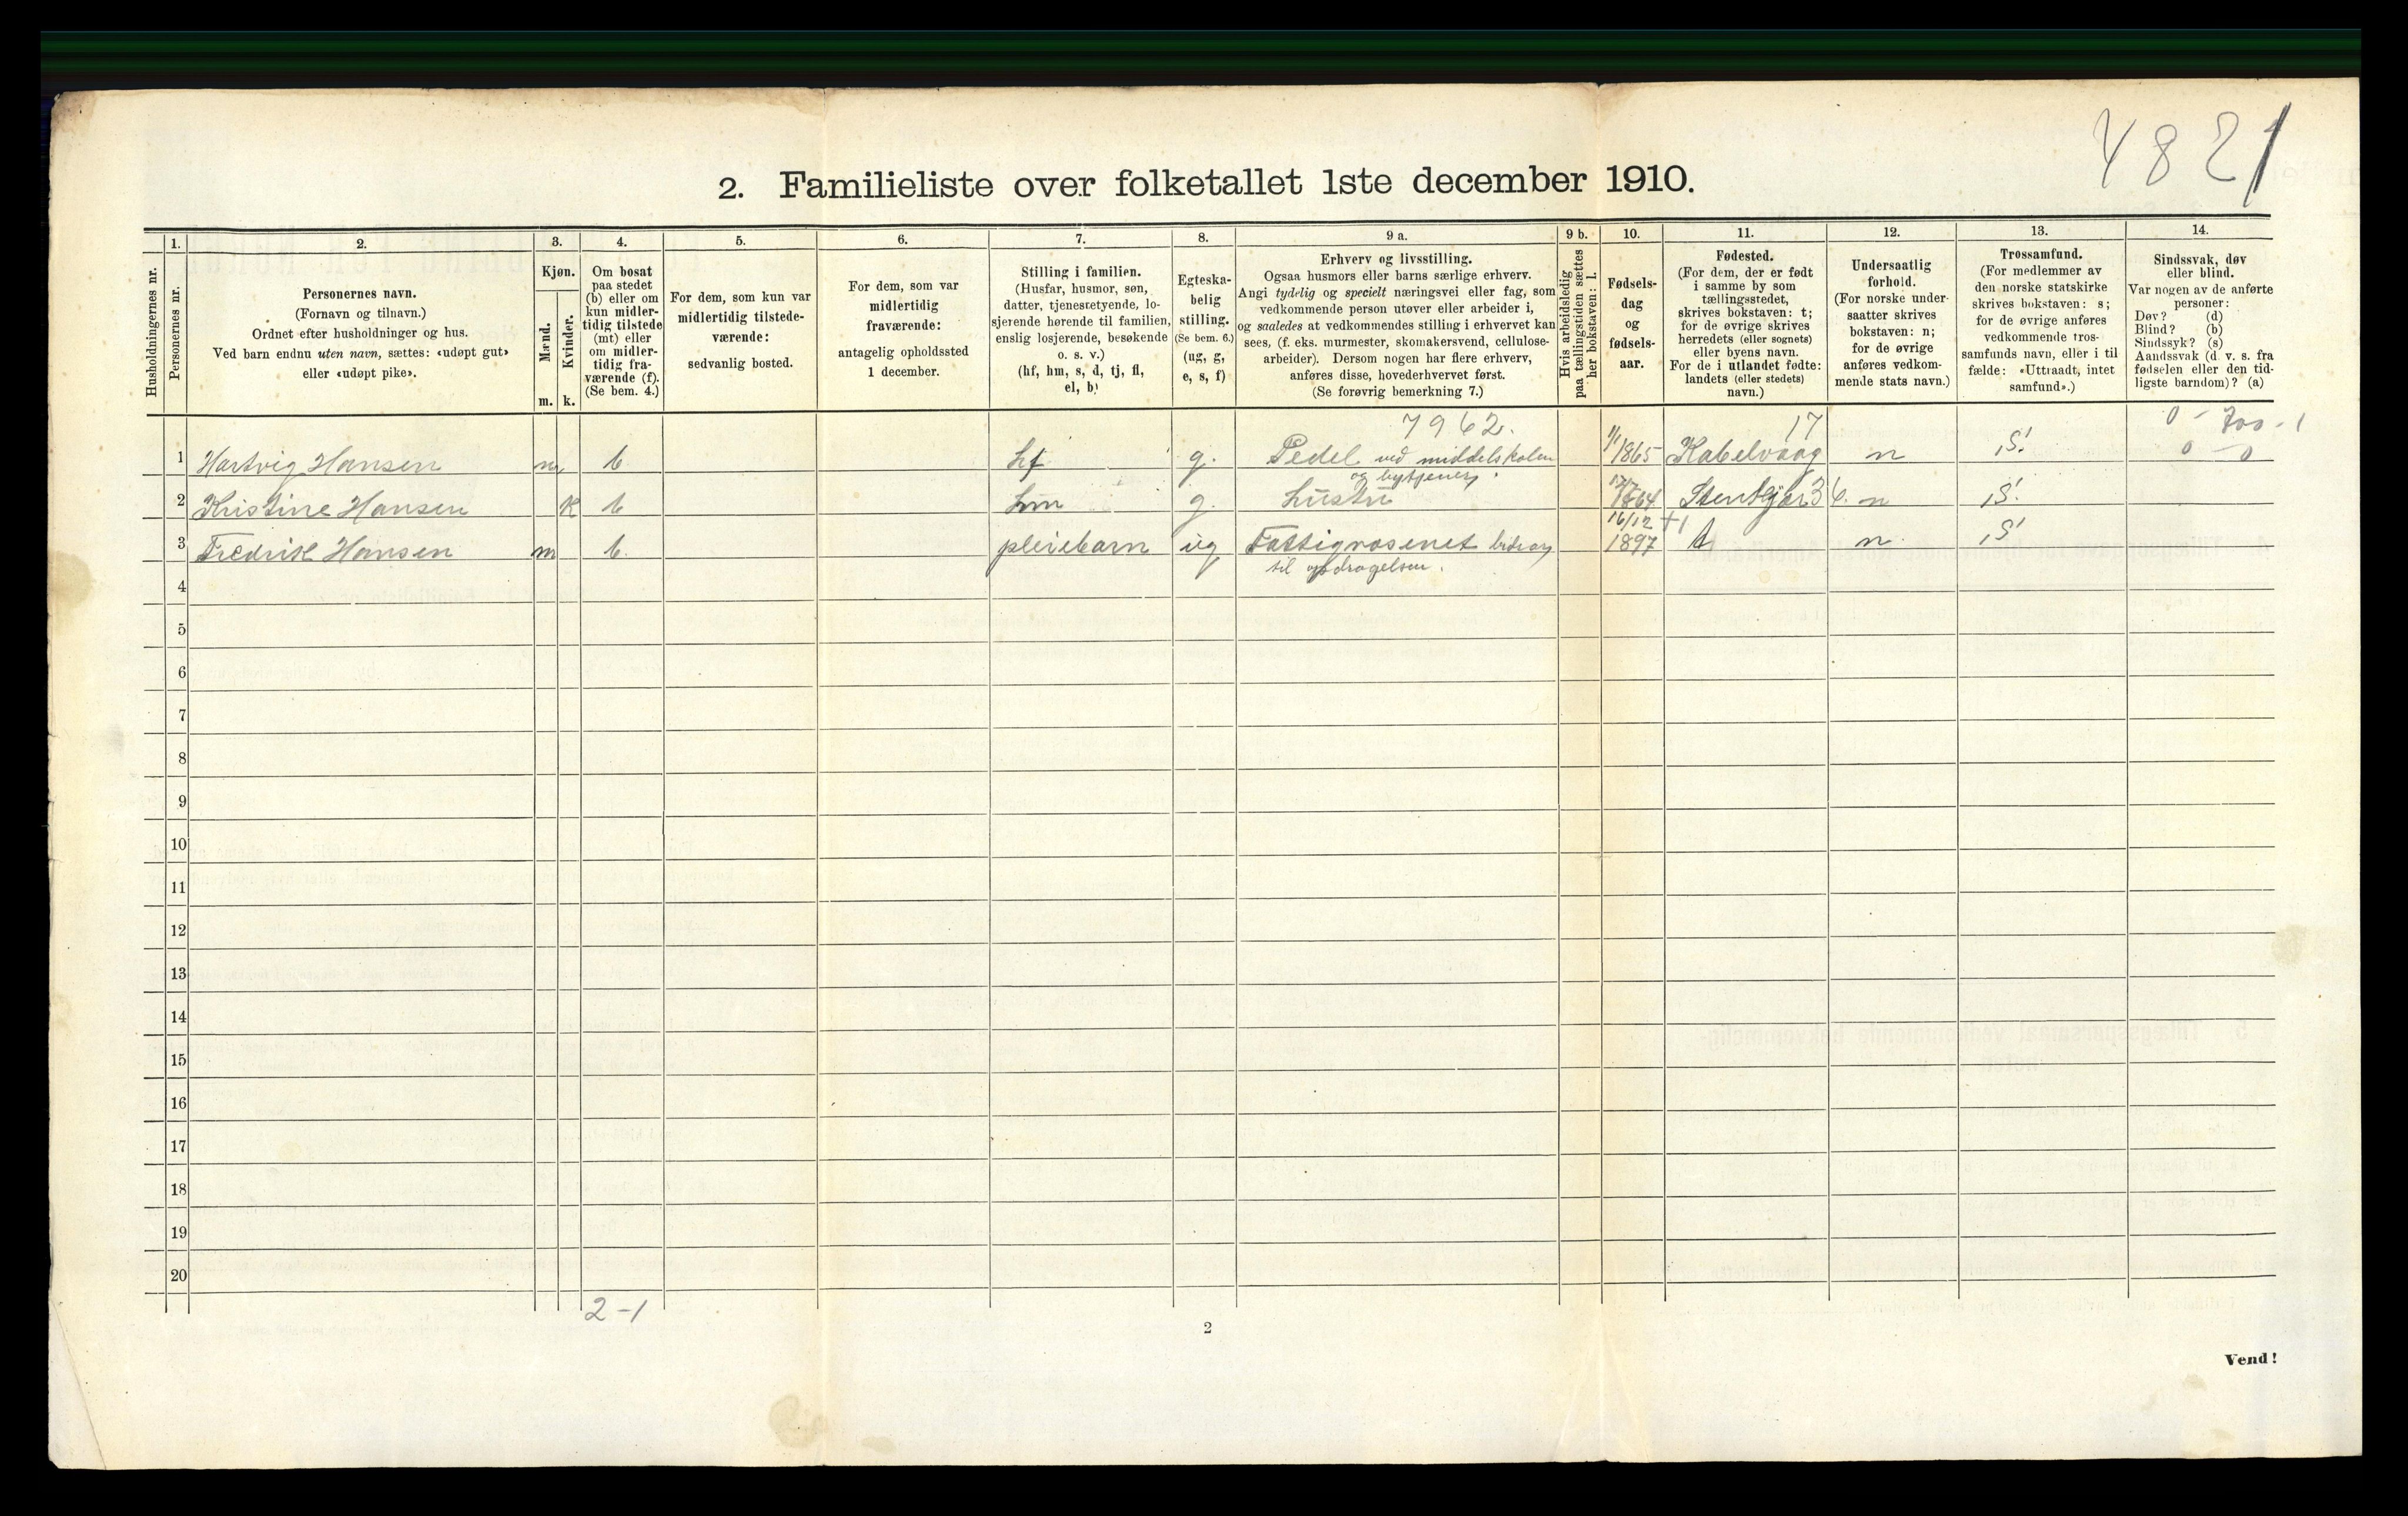 4821
2. Familieliste over folketallet 1ste december 1910.
Husholdningernes nr.
1.
Personernes nr.
2.
Personernes navn.
(Fornavn og tilnavn.)
Ordnet efter husholdninger og hus.
Ved barn endnu uten navn, sættes: «udøpt gut»
eller «udøpt pike».
3.
Kjøn.
Mænd.
Kvinder.
m. k.
4.
Om bosat
paa stedet
(b) eller om
kun midler-
tidig tilstede
(mt) eller
om midler-
tidig fra-
værende (f).
(Se bem. 4.)
5.
For dem, som kun var
midlertidig tilstede-
værende:
sedvanlig bosted.
6.
For dem, som var
midlertidig
fraværende:
antagelig opholdssted
1 december.
7.
Stilling i familien.
(Husfar, husmor, søn,
datter, tjenestetyende, lo-
sjerende hørende til familien,
enslig losjerende, besøkende
o. s. v.)
(hf, hm, s, d, tj, fl,
el, b)
8.
Egteska-
belig
stilling.
(Se bem. 6.)
(ug, g,
e, s, f)
9 a.
Erhverv og livsstilling.
Ogsaa husmors eller barns særlige erhverv.
Angi tydelig og specielt næringsvei eller fag, som
vedkommende person utøver eller arbeider i,
og saaledes at vedkommendes stilling i erhvervet kan
sees, (f. eks. murmester, skomakersvend, cellulose-
arbeider). Dersom nogen har flere erhverv,
anføres disse, hovederhvervet først.
(Se forøvrig bemerkning 7.)
9 b.
Hvis arbeidsledig
paa tællingstiden sættes
her bokstaven: l.
10.
Fødsels-
dag
og
fødsels-
aar.
11.
Fødested.
(For dem, der er født
i samme by som
tællingsstedet,
skrives bokstaven: t;
for de øvrige skrives
herredets (eller sognets)
eller byens navn.
For de i utlandet fødte:
landets (eller stedets)
navn.)
12.
Undersaatlig
forhold.
(For norske under-
saatter skrives
bokstaven: n;
for de øvrige
anføres vedkom-
mende stats navn.)
13.
Trossamfund.
(For medlemmer av
den norske statskirke
skrives bokstaven: s;
for de øvrige anføres
vedkommende tros-
samfunds navn, eller i til
fælde: «Uttraadt, intet
samfund».)
14.
Sindssvak, døv
eller blind.
Var nogen av de anførte
personer:
Døv? (d)
Blind? (b)
Sindssyk? (s)
Aandssvak (d. v. s. fra
fødselen eller den tid-
ligste barndom)? (a)
7962. 17 0 - 700 - 1
1 Hartvig Hansen m b hf g. Pedel ved middelskolen 1/1 1865 Kabelvaag n S. 0 0
og bytjener.
2 Kristine Hansen K b hm g. hustru 1864 Stenkjær 36. n S.
3 Fredrik Hansen m b. pleiebarn ug Fattigvæsenet bidrag 16/12 1897 +1 t n. S
til opdragelsen.
4
5
6
7
8
9
10
11
12
13
14
15
16
17
18
19
20
2-1
2
Vend!